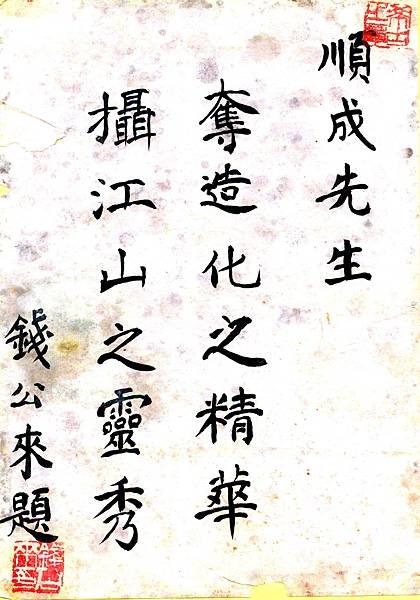 順成先生
奪造化之精華
攝江山之靈秀
錢公來題